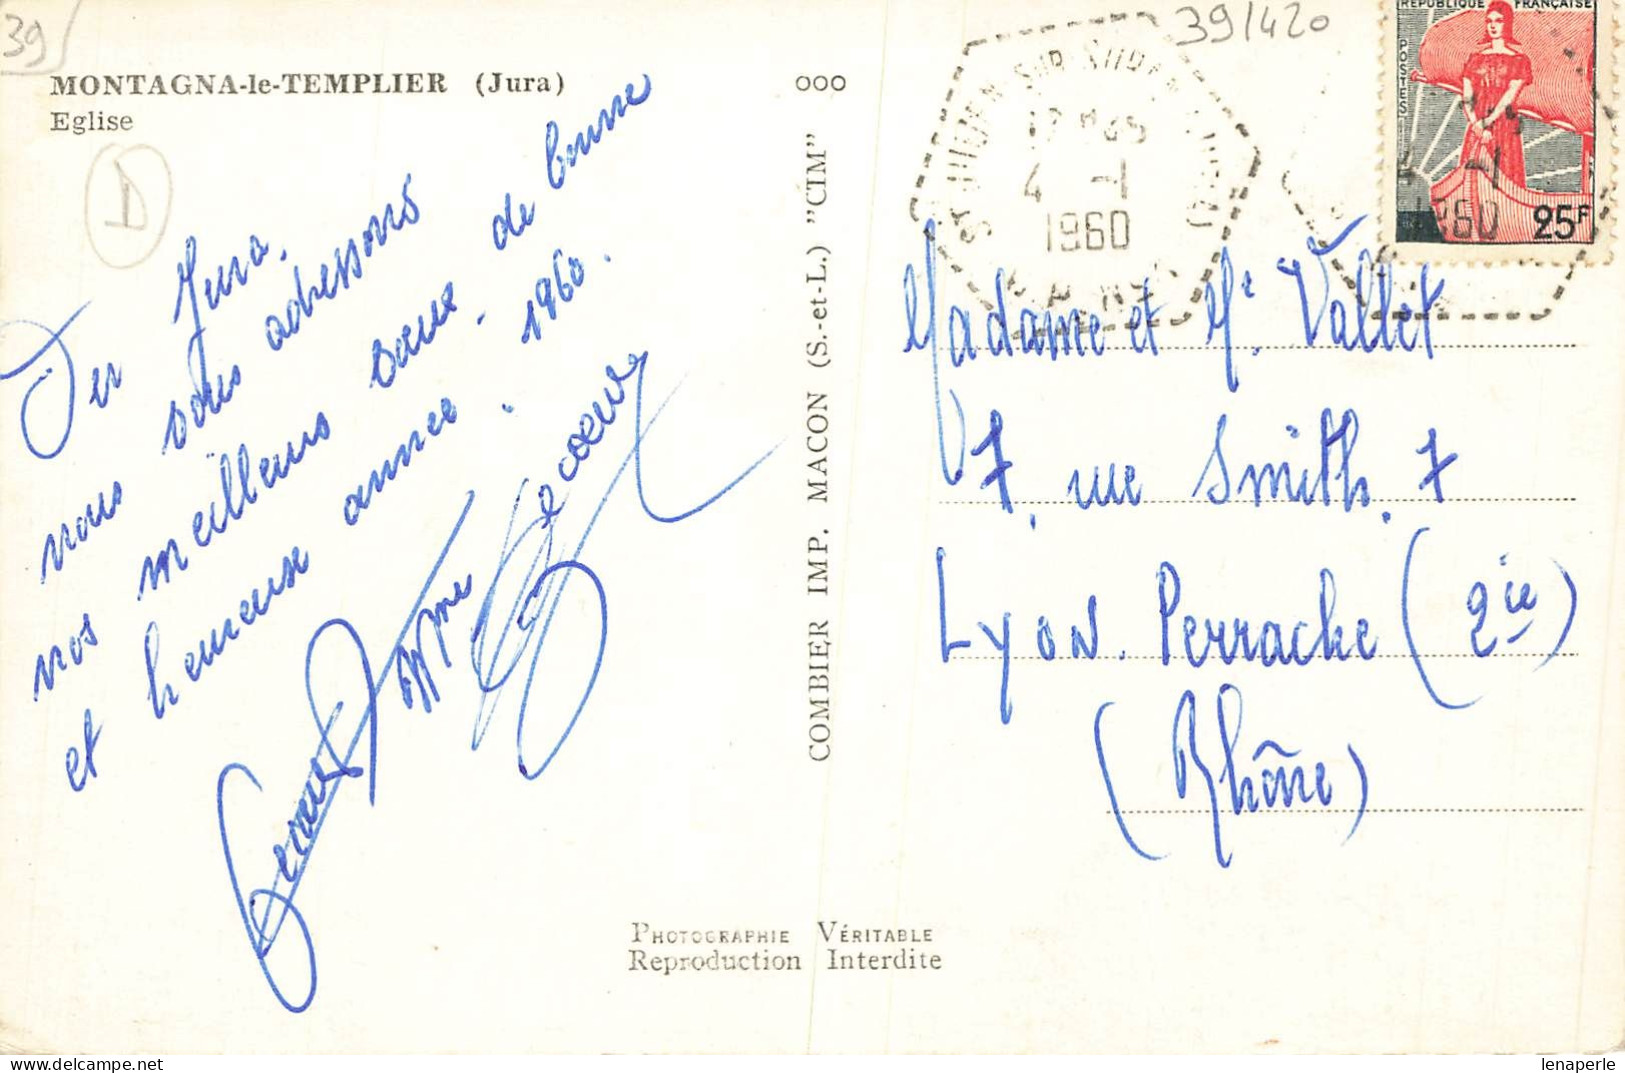 39
39/420
MONTAGNA-le-TEMPLIER (Jura)
Eglise
D
000
Jura,
nous vous adressons
nos meilleurs vœux de bonne
et heureuse année. 1960.
COMBIER IMP. MACON (S.-et-L.) "CIM"
ST JULIEN-SUR-SURAN (JURA)
4 -1
1960
RÉPUBLIQUE FRANÇAISE
POSTES
25F
1960
Madame et Mr. Vallet
7, rue Smith, 7
Lyon. Perrache (2ie)
(Rhône)
PHOTOGRAPHIE VÉRITABLE
Reproduction Interdite
lenaperle